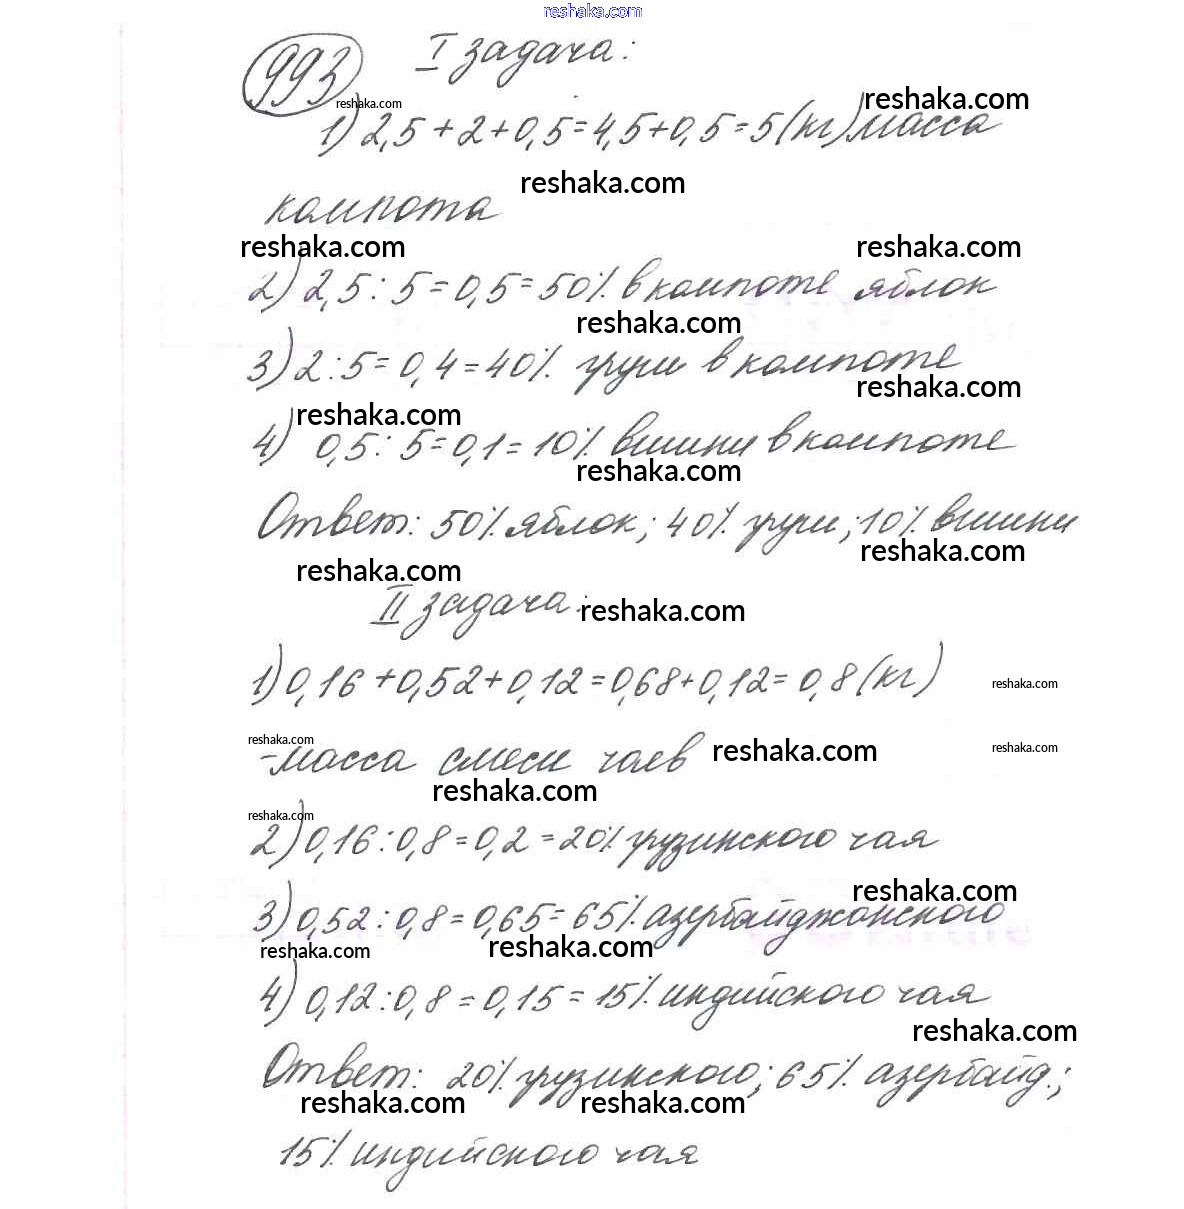 reshaka.com
993 I задача:
reshaka.com reshaka.com
1) 2,5 + 2 + 0,5 = 4,5 + 0,5 = 5 (кг) масса
reshaka.com
компота
reshaka.com reshaka.com
2) 2,5 : 5 = 0,5 = 50% в компоте яблок
reshaka.com
3) 2 : 5 = 0,4 = 40% груш в компоте
reshaka.com
reshaka.com
4) 0,5 : 5 = 0,1 = 10% вишни в компоте
reshaka.com
Ответ: 50% яблок; 40% груш; 10% вишни
reshaka.com
reshaka.com
II задача:
reshaka.com
1) 0,16 + 0,52 + 0,12 = 0,68 + 0,12 = 0,8 (кг)
reshaka.com
reshaka.com reshaka.com reshaka.com
- масса смеси чаев
reshaka.com
reshaka.com
2) 0,16 : 0,8 = 0,2 = 20% грузинского чая
reshaka.com
3) 0,52 : 0,8 = 0,65 = 65% азербайджанского
reshaka.com reshaka.com
4) 0,12 : 0,8 = 0,15 = 15% индийского чая
reshaka.com
Ответ: 20% грузинского; 65% азербайд.;
reshaka.com reshaka.com
15% индийского чая